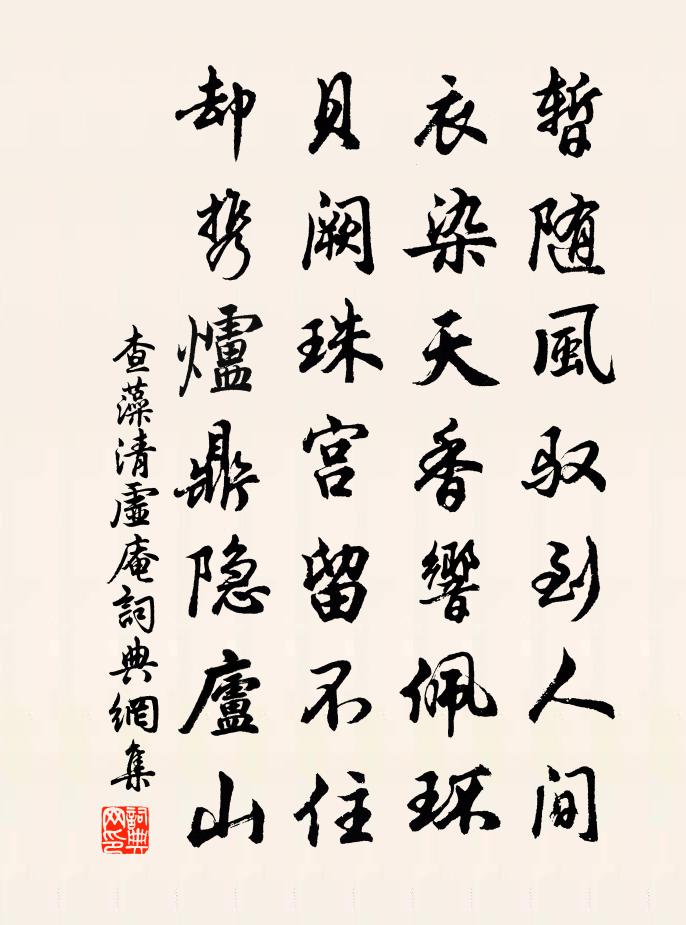 暫随風馭到人间
衣染天香響佩环
貝阙珠宫留不住
却携爐鼎隐廬山
查藻清虛庵詞典網集
詞典网印